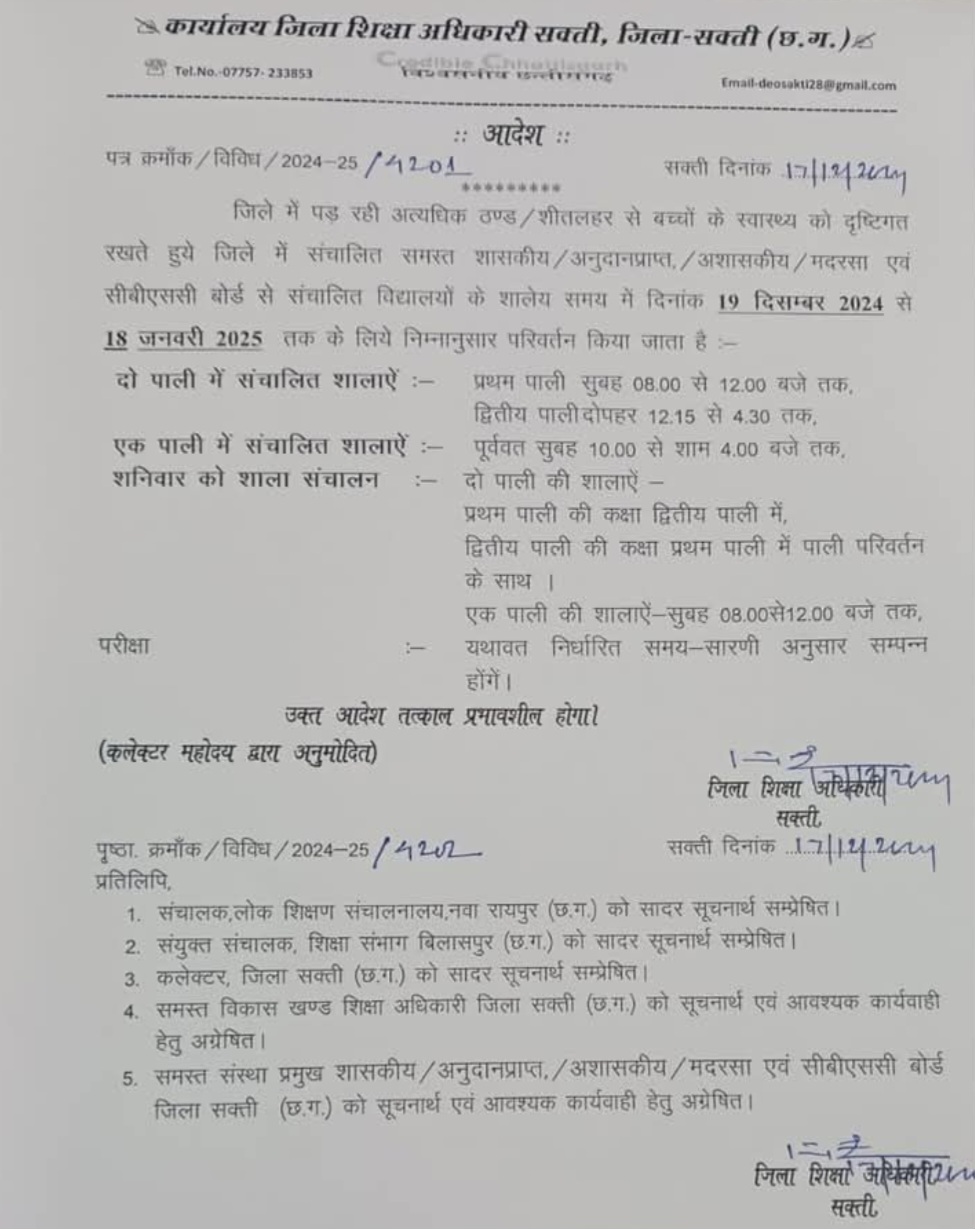 कार्यालय जिला शिक्षा अधिकारी सक्ती, जिला-सक्ती (छ.ग.)
Tel.No.-07757- 233853
Credible Chhattisgarh
विश्वसनीय छत्तीसगढ़
Email-deosakti28@gmail.com
:: आदेश ::
पत्र क्रमाँक/विविध/2024-25 /4201 सक्ती दिनांक 17/12/2024
*********
जिले में पड़ रही अत्यधिक ठण्ड/शीतलहर से बच्चों के स्वास्थ्य को दृष्टिगत
रखते हुये जिले में संचालित समस्त शासकीय/अनुदानप्राप्त,/अशासकीय/मदरसा एवं
सीबीएससी बोर्ड से संचालित विद्यालयों के शालेय समय में दिनांक 19 दिसम्बर 2024 से
18 जनवरी 2025 तक के लिये निम्नानुसार परिवर्तन किया जाता है :–
दो पाली में संचालित शालाऐं :– प्रथम पाली सुबह 08.00 से 12.00 बजे तक,
द्वितीय पालीदोपहर 12.15 से 4.30 तक,
एक पाली में संचालित शालाऐं :– पूर्ववत सुबह 10.00 से शाम 4.00 बजे तक,
शनिवार को शाला संचालन :– दो पाली की शालाऐं –
प्रथम पाली की कक्षा द्वितीय पाली में,
द्वितीय पाली की कक्षा प्रथम पाली में पाली परिवर्तन
के साथ ।
एक पाली की शालाऐं–सुबह 08.00से12.00 बजे तक,
परीक्षा :– यथावत निर्धारित समय–सारणी अनुसार सम्पन्न
होंगें।
उक्त आदेश तत्काल प्रभावशील होगा।
(कलेक्टर महोदय द्वारा अनुमोदित)
17/12/2024
जिला शिक्षा अधिकारी
सक्ती
पृष्ठा. क्रमाँक/विविध/2024-25 /4202 सक्ती दिनांक 17/12/2024
प्रतिलिपि,
1. संचालक,लोक शिक्षण संचालनालय,नवा रायपुर (छ.ग.) को सादर सूचनार्थ सम्प्रेषित।
2. संयुक्त संचालक, शिक्षा संभाग बिलासपुर (छ.ग.) को सादर सूचनार्थ सम्प्रेषित।
3. कलेक्टर, जिला सक्ती (छ.ग.) को सादर सूचनार्थ सम्प्रेषित।
4. समस्त विकास खण्ड शिक्षा अधिकारी जिला सक्ती (छ.ग.) को सूचनार्थ एवं आवश्यक कार्यवाही
हेतु अग्रेषित।
5. समस्त संस्था प्रमुख शासकीय/अनुदानप्राप्त,/अशासकीय/मदरसा एवं सीबीएससी बोर्ड
जिला सक्ती (छ.ग.) को सूचनार्थ एवं आवश्यक कार्यवाही हेतु अग्रेषित।
जिला शिक्षा अधिकारी
सक्ती